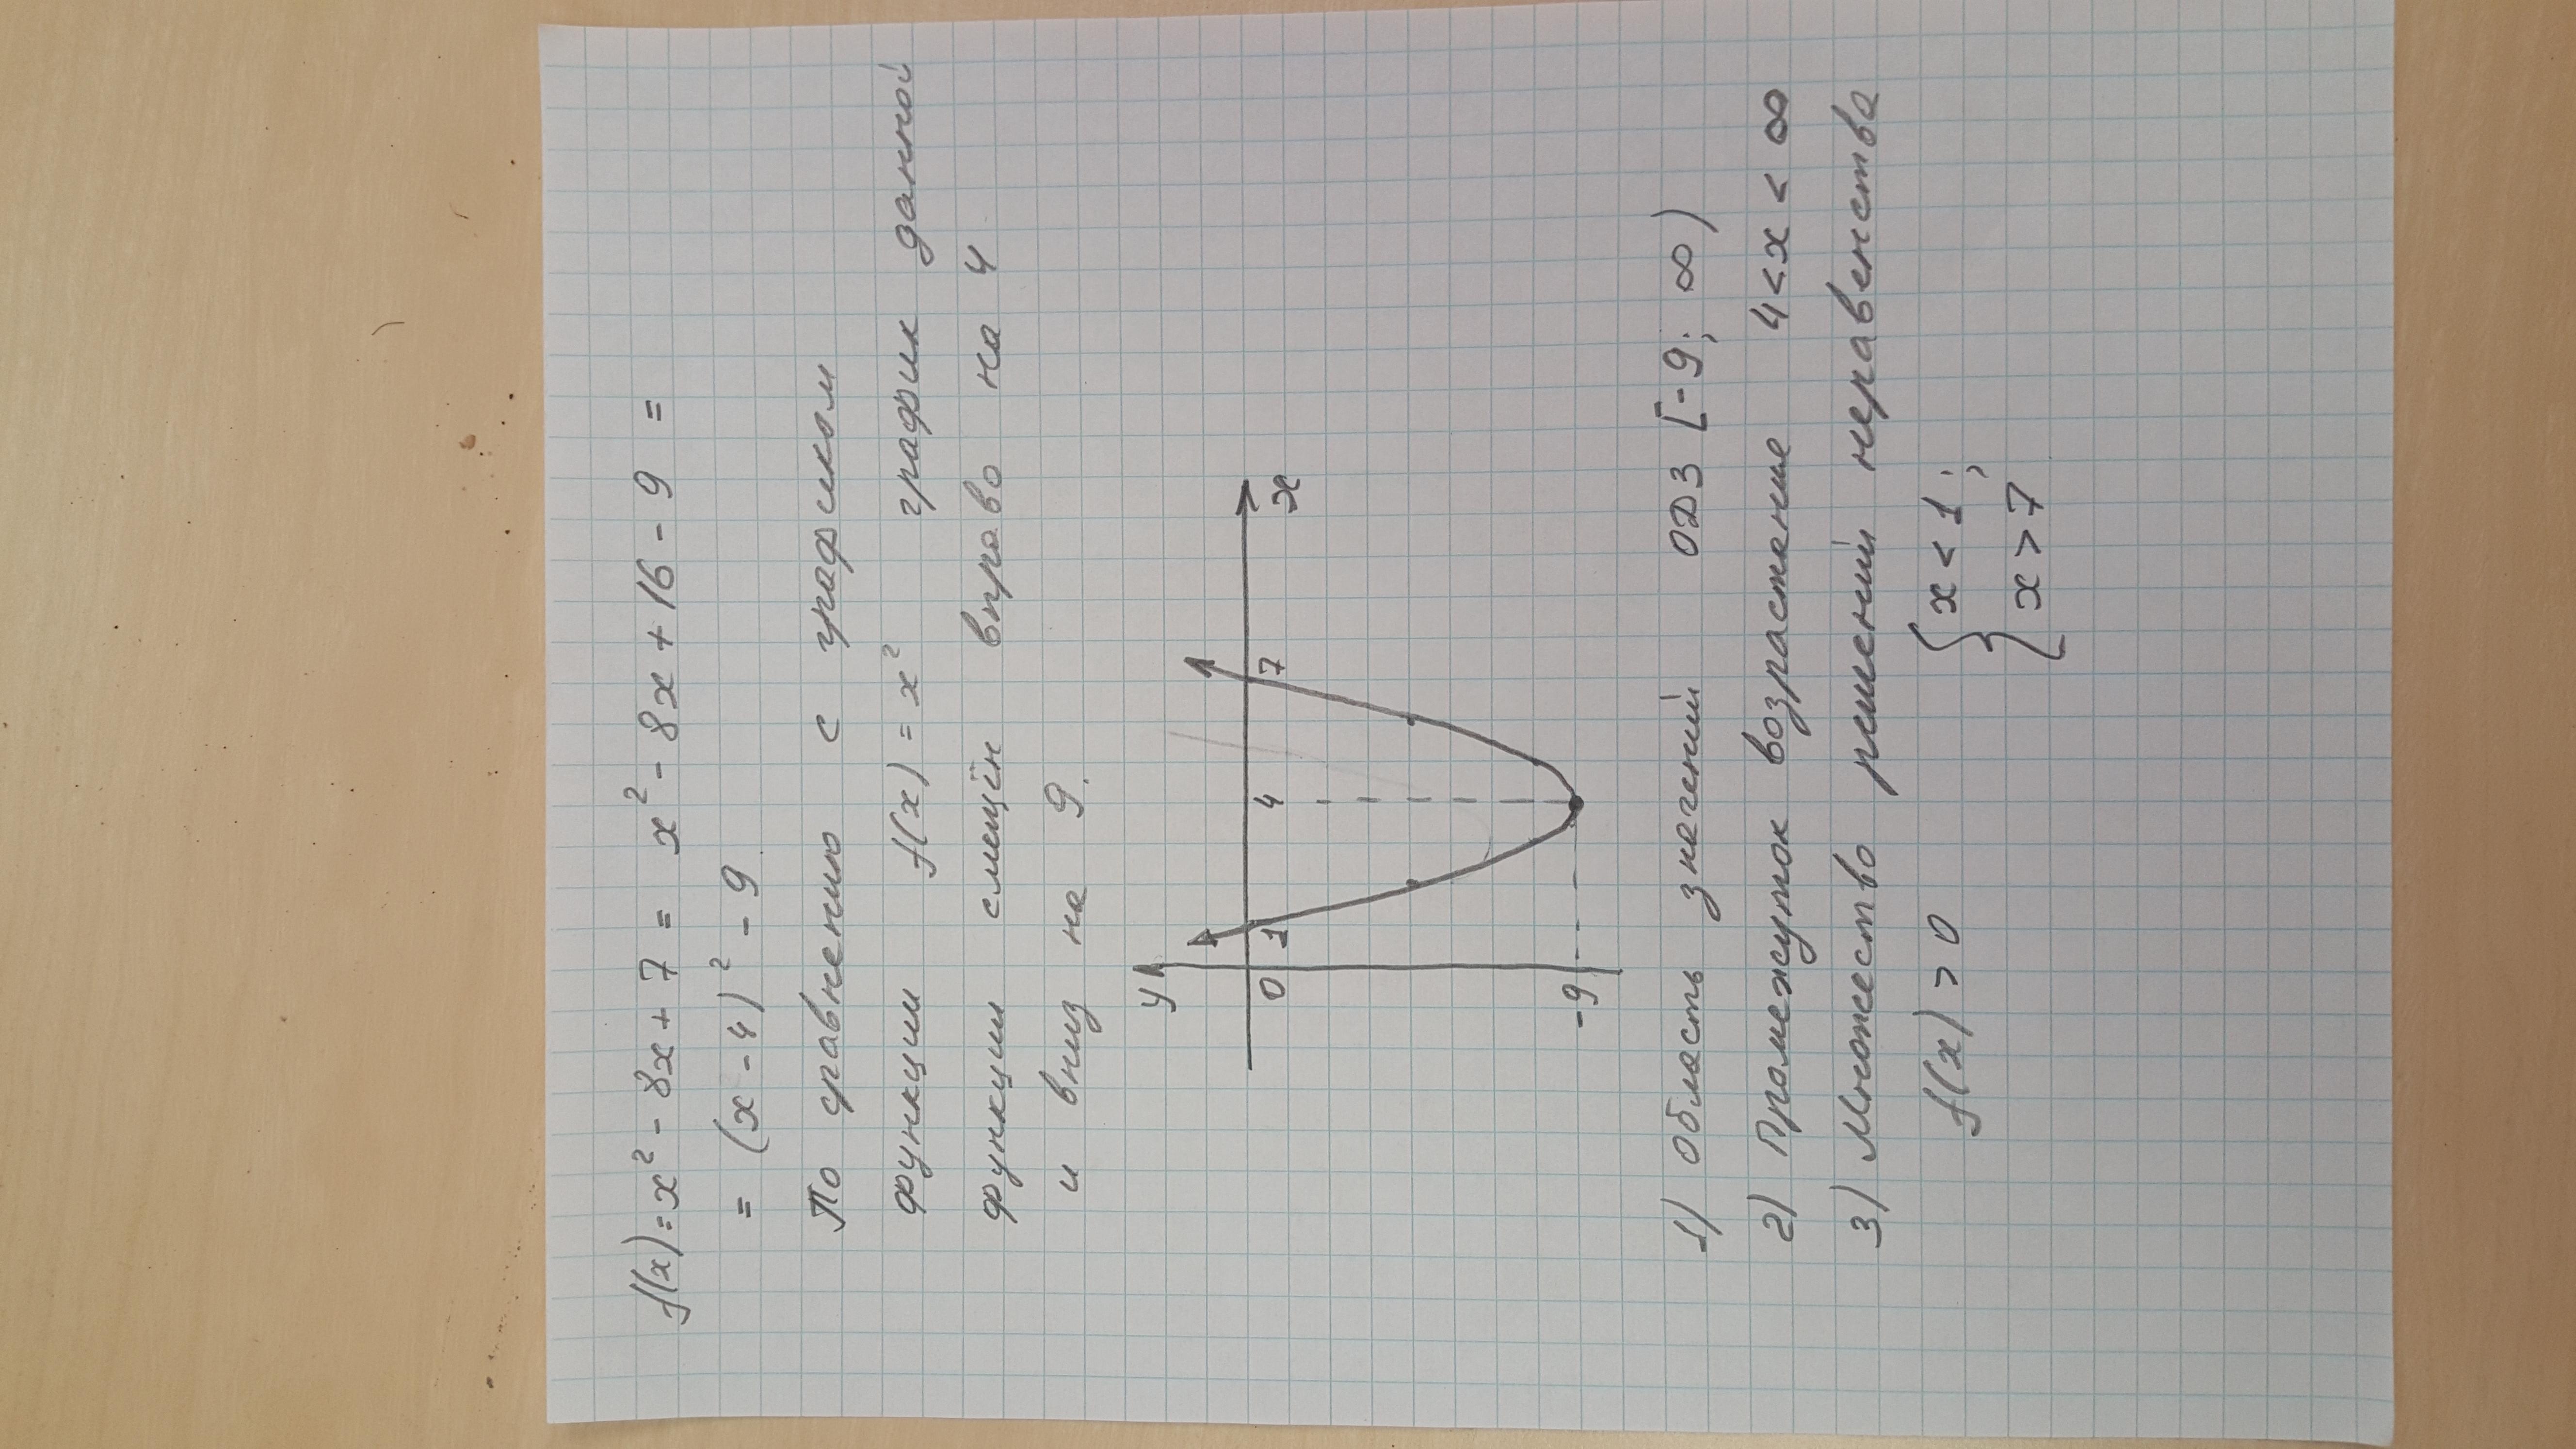 f(x)=x²-8x+7 = x²-8x+16-9 =
= (x-4)²-9
По сравнению с графиком
функции f(x)=x² график данной
функции смещён вправо на 4
и вниз на 9.
y
0 1 4 7 x
-9
1) Область значений ОДЗ [-9; ∞)
2) Промежуток возрастание 4<x<∞
3) Множество решений неравенства
f(x)>0 { x<1;
x>7